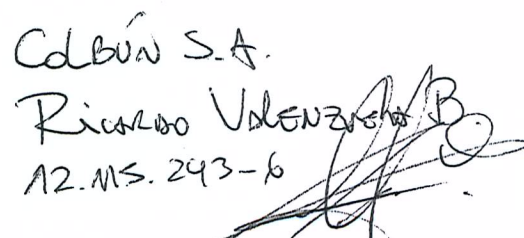 COLBÚN S.A.
RICARDO VALENZUELA B.
12.115.243-6